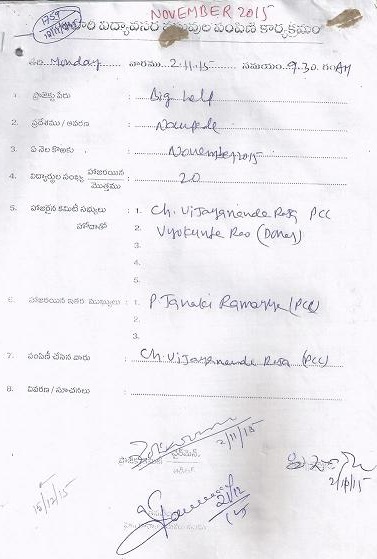 NOVEMBER 2015
విద్యావసర పంపిణీ కార్యక్రమం
Monday వారము 2.11.15 సమయం 9.30 గం AM
1. ప్రాజెక్టు పేరు : Big help
2. ప్రదేశము / ఆవరణ : Naupade
3. ఏ నెల కొఱకు : November 2015
4. విద్యార్థుల సంఖ్య హాజరయిన / మొత్తము : 20
5. హాజరైన కమిటీ సభ్యులు : 1. Ch. Vijayanande Raja PCC
హోదాతో 2. Vyokunta Rao (Donar)
3.
4.
5.
6. హాజరయిన ఇతర ముఖ్యులు : 1. P Janaki Ramayya (PCC)
2.
3.
7. పంపిణీ చేసిన వారు : Ch. Vijayanande Raja (PCC)
8. వివరణ / సూచనలు :
2/11/15
ఛైర్మెన్.
15/12/15